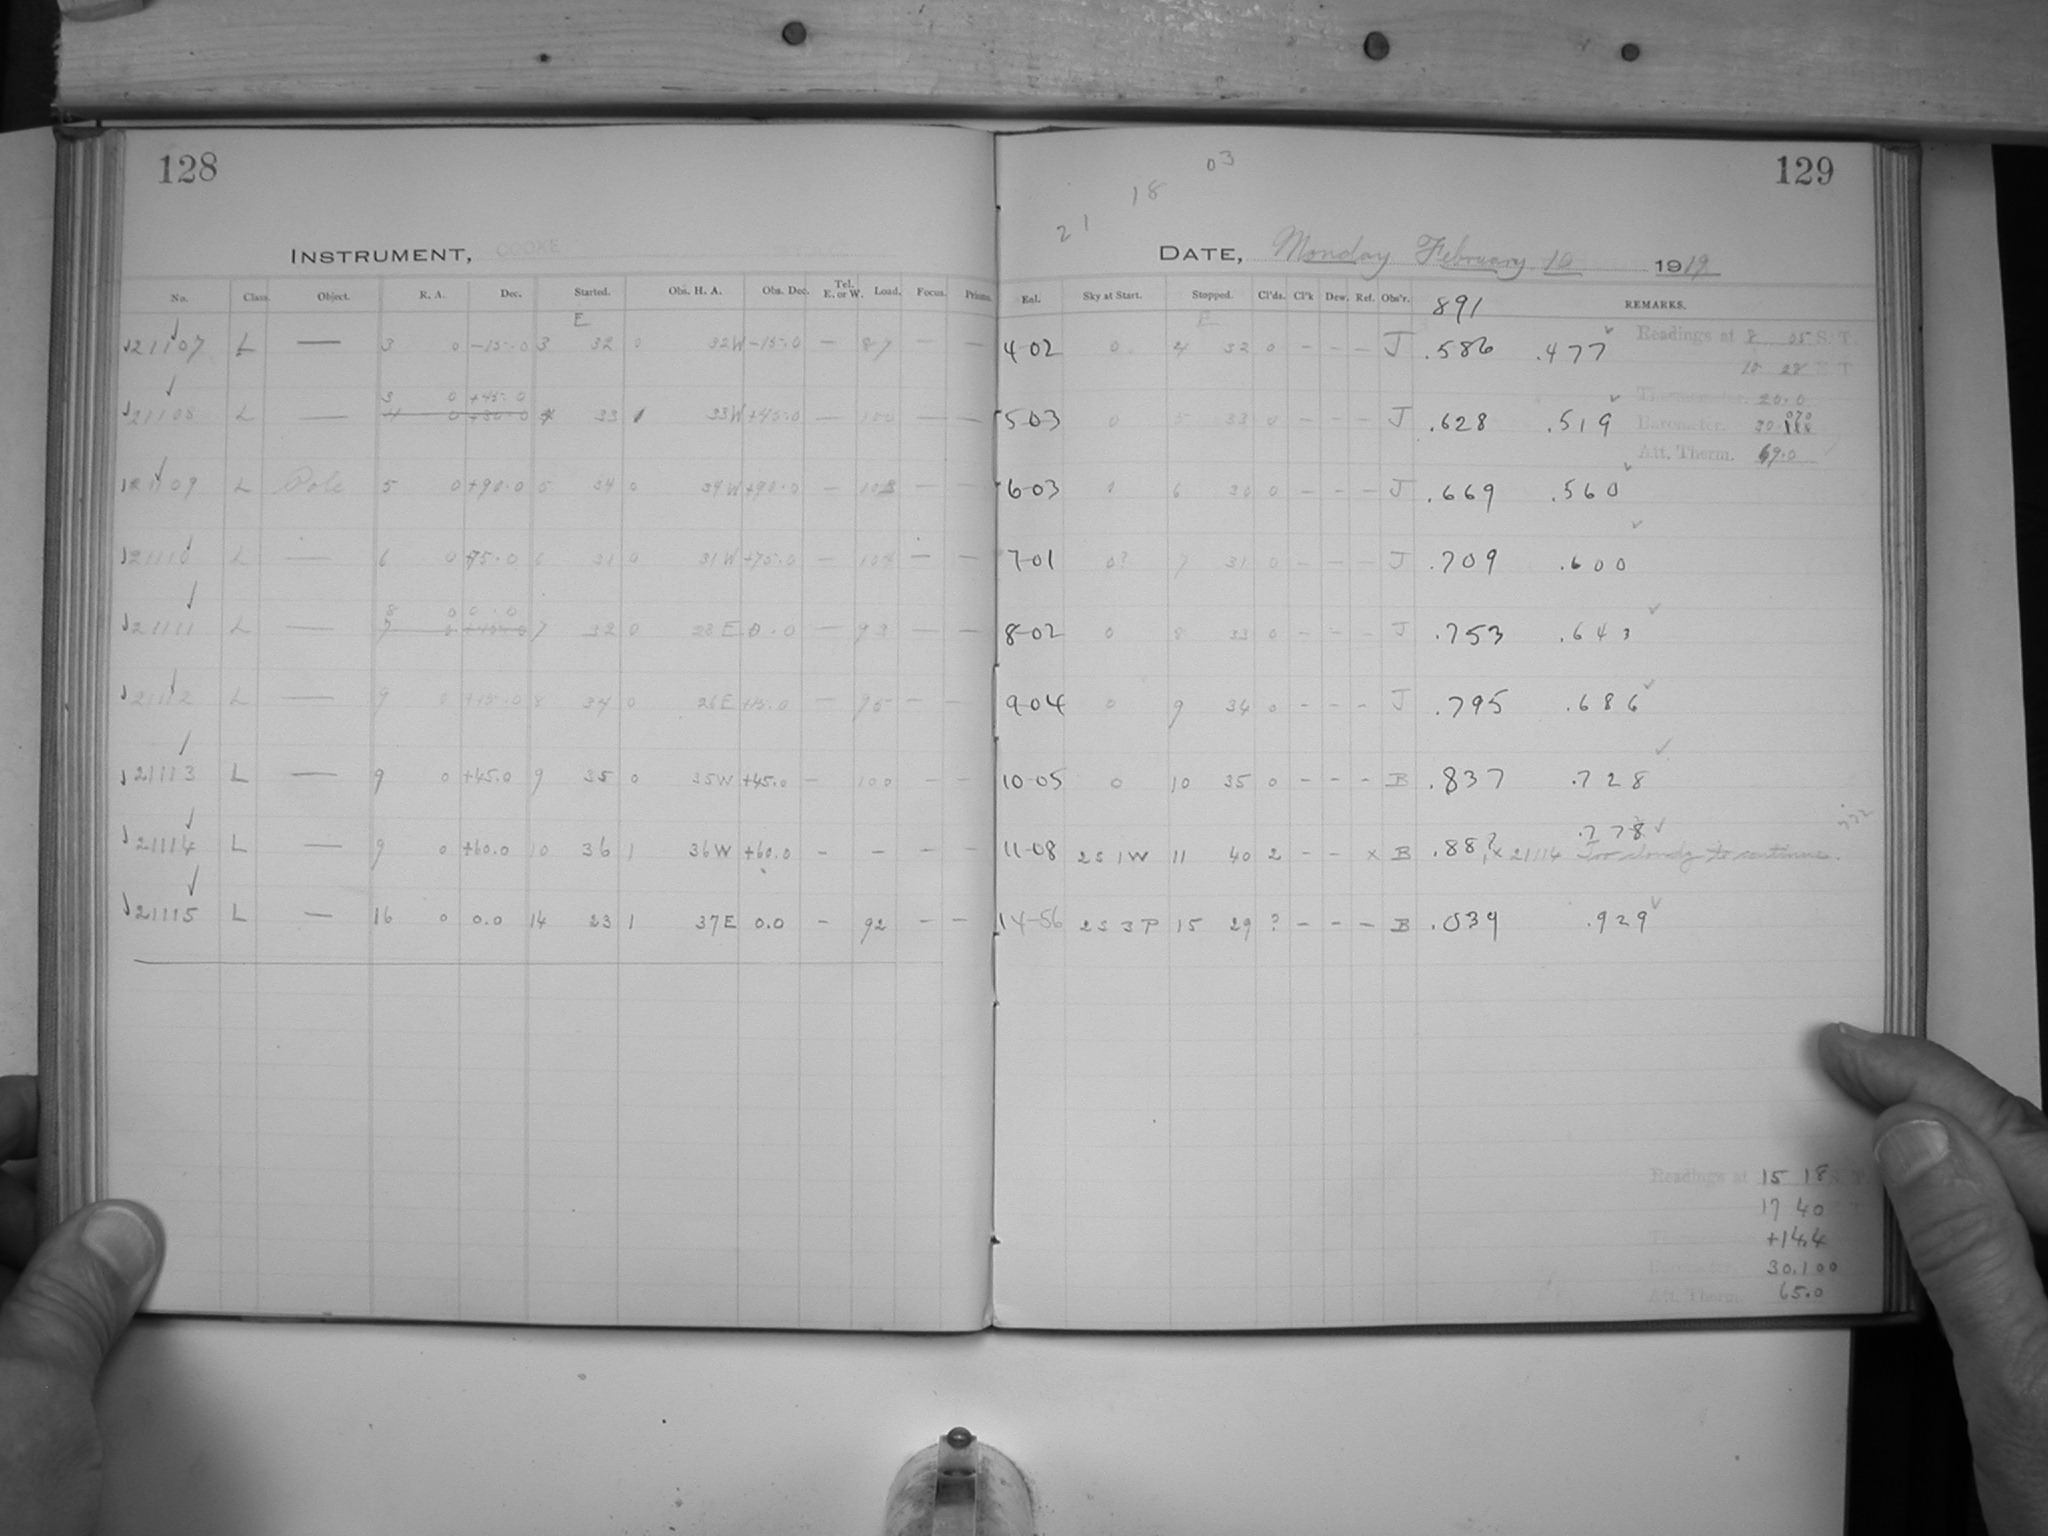 128
INSTRUMENT, COOKE
No. Class. Object. R. A. Dec. Started. Obs. H. A. Obs. Dec. Tel. E. or W. Load. Focus. Prisms.
E
21107 L — 3 0 -15.0 3 32 0 32W -15.0 — 87 — —
3 0 +45.0
21108 L — 4 0 +30.0 4 33 1 33W +45.0 — 100 — —
21109 L Pole 5 0 +90.0 5 34 0 34W +90.0 — 103 — —
21110 L — 6 0 +75.0 6 31 0 31W +75.0 — 104 — —
8 0 0.0
21111 L — 7 0 7 32 0 28E 0.0 — 93 — —
21112 L — 9 0 +15.0 8 34 0 26E +15.0 — 95 — —
21113 L — 9 0 +45.0 9 35 0 35W +45.0 — 100 — —
21114 L — 9 0 +60.0 10 36 1 36W +60.0 — — — —
21115 L — 16 0 0.0 14 23 1 37E 0.0 — 92 — —
03
129
18
21
DATE, Monday February 10 1919
Eal. Sky at Start. Stopped. Cl'ds. Cl'k Dew. Ref. Obs'r. 891 REMARKS.
E
4-02 0 4 32 0 - - - J .586 .477 ✓ Readings at 8 05 S. T.
10 28 E T
Thermometer. 20.0
5-03 0 5 33 0 - - - J .628 .519 ✓ Barometer. 30.070
Att. Therm. 69.0
6-03 0 6 30 0 - - - J .669 .560 ✓
7-01 0? 7 31 0 - - - J .709 .600 ✓
8-02 0 8 33 0 - - - J .753 .643 ✓
9-04 0 9 34 0 - - - J .795 .686 ✓
10-05 0 10 35 0 - - - B .837 .728 ✓
.778 ✓ 772
11-08 2S 1W 11 40 2 - - x B .88? x 21114 Too cloudy to continue.
14-56 2S 3P 15 29 ? - - - B .039 .929 ✓
Readings at 15 18 S. T.
17 40
+14.4
Barometer. 30.100
Att. Therm. 65.0